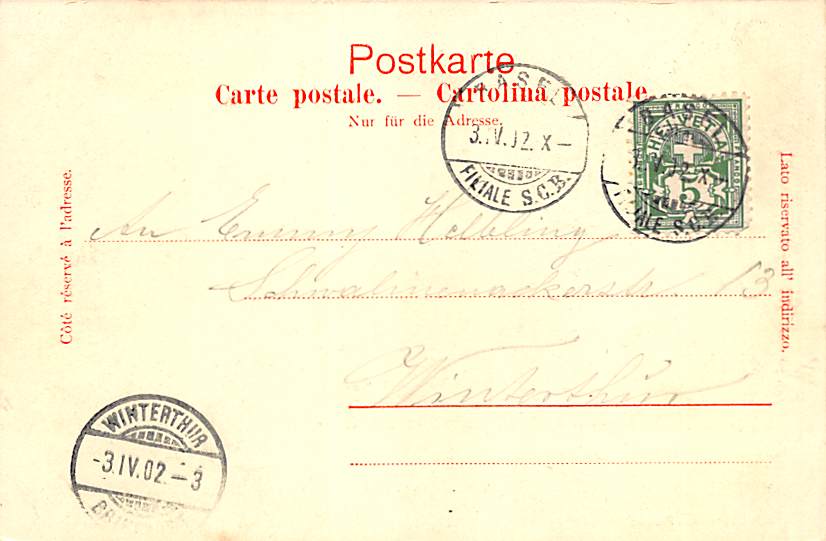 Postkarte
Carte postale. — Cartolina postale.
Nur für die Adresse.
Côté réservé à l'adresse.
Lato riservato all' indirizzo.
BASEL
3.IV.02.X–
FILIALE S.C.B.
BASEL
IV.02.X
FILIALE S.C.B.
HELVETIA
5
An Emmy Helbling
13
Winterthur
WINTERTHUR
-3.IV.02.–3